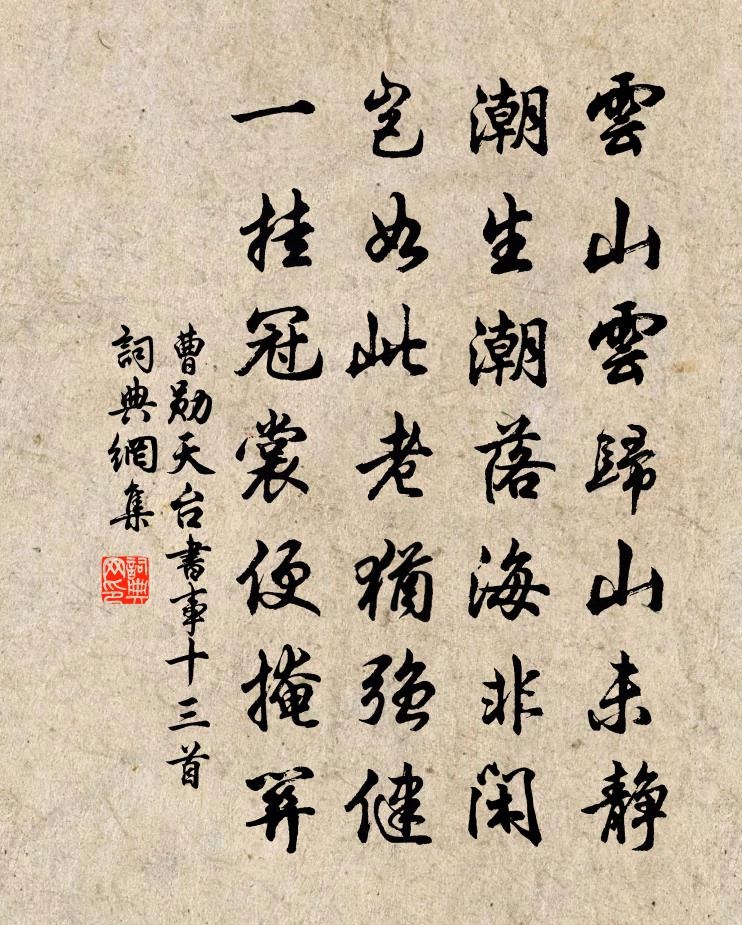 雲山雲歸山未静
潮生潮落海非閑
豈如此老猶强健
一挂冠裳便掩關
曹勛天台書事十三首
詞典網集
詞典网印